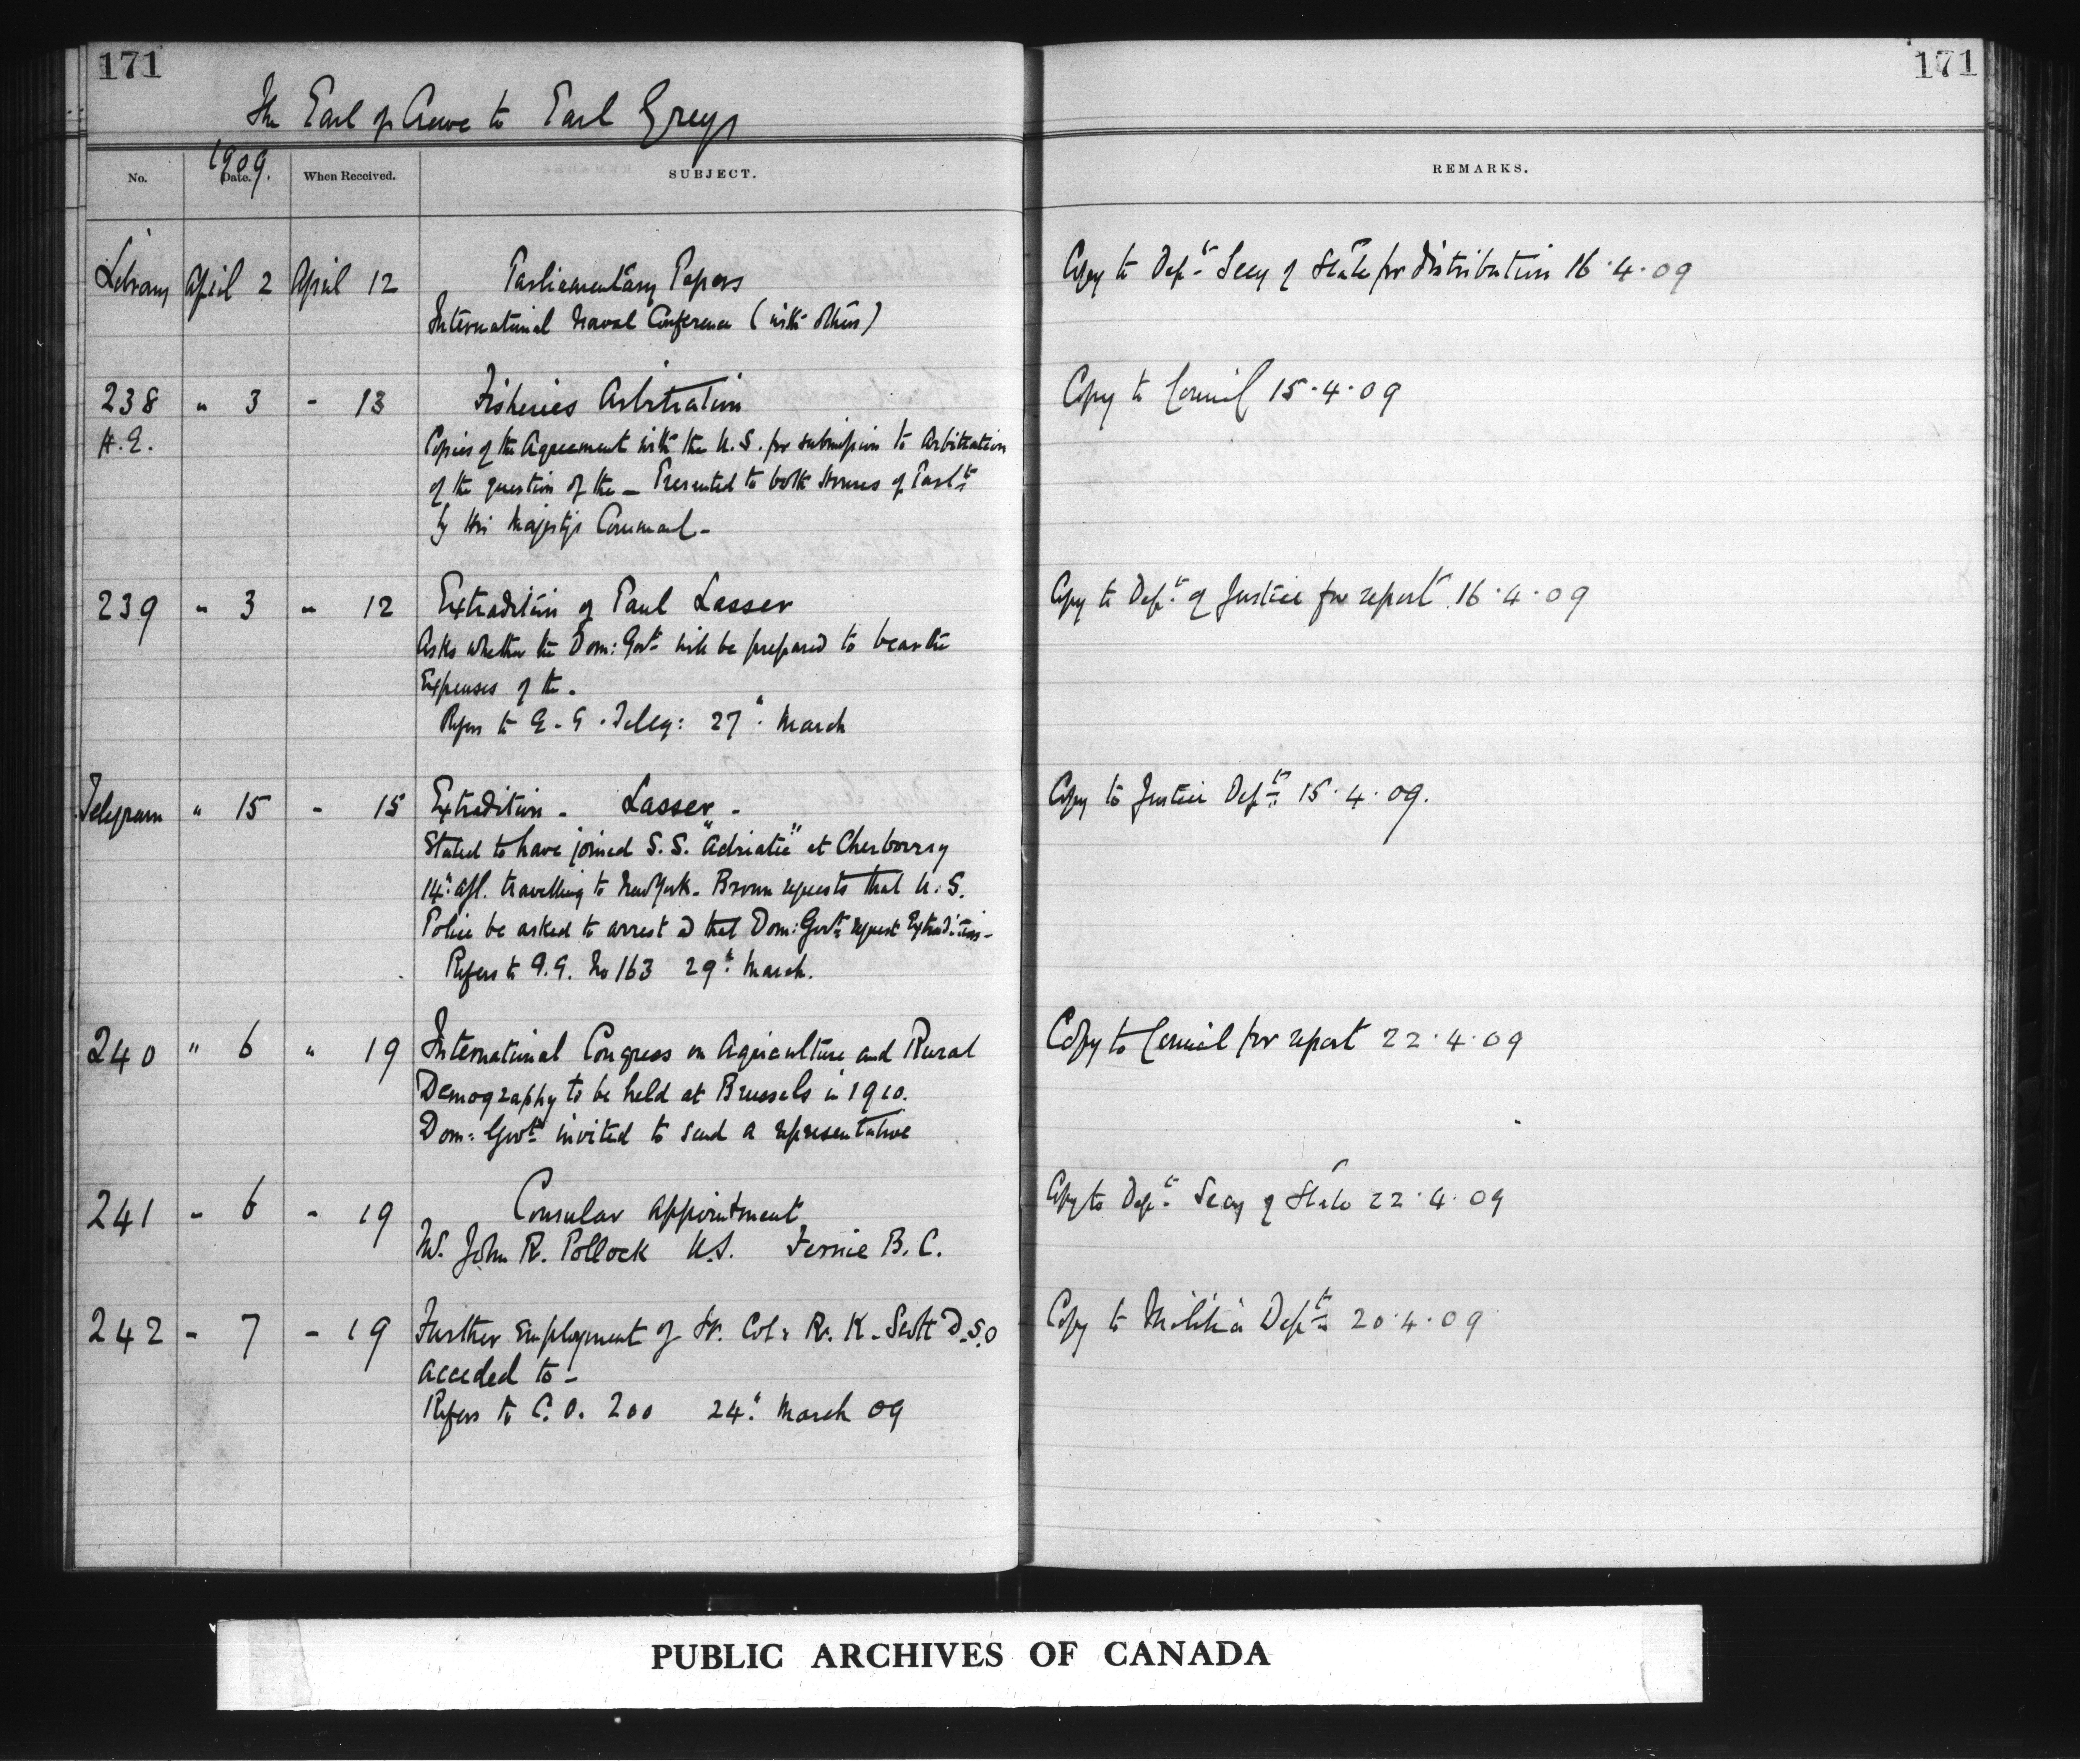 171
171
The Earl of Crewe to Earl Grey
1909.
No. Date. When Received. SUBJECT. REMARKS.
Library April 2 April 12 Parliamentary Papers Copy to Dept Secy of State for distribution 16.4.09
International Naval Conference (with others)
238 " 3 - 13 Fisheries Arbitration Copy to Council 15.4.09
Copies of the Agreement with the U.S. for submission to Arbitration
of the question of the - Presented to both Houses of Parlt
by His Majesty's Command -
239 " 3 " 12 Extradition of Paul Lasser Copy to Dept of Justice for report 16.4.09
Asks whether the Dom: Govt will be prepared to bear the
Expenses of the.
Refers to G.G. Teleg: 27" March
Telegram " 15 - 15 Extradition - Lasser - Copy to Justice Dept 15.4.09.
Stated to have joined S.S. "Adriatic" at Cherbourg
14" Apl. travelling to New York. Brown requests that U.S.
Police be asked to arrest & that Dom: Govt request Extradition -
Refers to G.G. No 163 29" March.
240 " 6 " 19 International Congress on Agriculture and Rural Copy to Council for report 22.4.09
Demography to be held at Brussels in 1910.
Dom: Govt invited to send a representative
241 - 6 - 19 Consular Appointment Copy to Dept Secy of State 22.4.09
Mr. John R. Pollock U.S. Fernie B.C.
242 - 7 - 19 Further Employment of Lt. Col: R. K. Scott D.S.O Copy to Militia Dept 20.4.09
acceded to -
Refers to C.O. 200 24" March 09
PUBLIC ARCHIVES OF CANADA